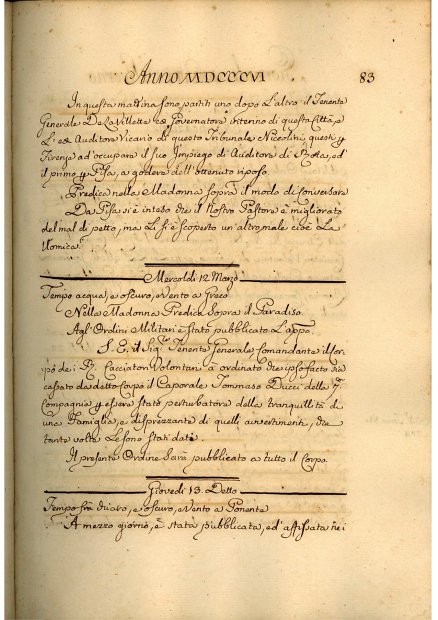 Anno MDCCCVI 83
In questa mattina sono partiti uno dopo L'altro il Tenente
Generale De La Villette ex Governatore interino di questa Città, e
L'ex Auditore Vicario di questo Tribunale Niccolini questi p
Firenze ad occupare il suo Impiego di Auditore di Rota, ed
il primo p Pisa, a godere dell'ottenuto riposo.
Predica nelle Madonna sopra il modo di Conversare
Da Pisa si è inteso che il Nostro Pastore è migliorato
del mal di petto, ma Li si è scoperto un'altro male cioè La
Vomica.
Mercoldi 12 Marzo
Tempo acqua, e oscuro, e Vento a Greco
Nelle Madonna Predica Sopra il Paradiso.
Agl'Ordini Militari è stato pubblicato L'appo.
S. E. il Sig.r Tenente Generale Comandante il Cor-
po de i R. Cacciatori Volontari à ordinato che ipso facto sia
cassato da detto Corpo il Caporale Tommaso Ducci della 7.
Compagnia p essere stato perturbatore della tranquillità di
una Famiglia, e disprezzante di quelli avvertimenti, che
tante volte Le sono stati dati.
Il presente Ordine Sarà pubblicato a tutto il Corpo.
Giovedi 13. Detto
Tempo frà chiaro, e oscuro, e Vento a Ponente
A mezzo giorno, è stata pubblicata, ed' affissata nei